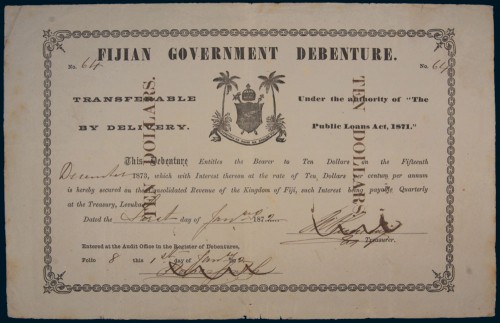 FIJIAN GOVERNMENT DEBENTURE.
No. 64
No. 64
TRANSFERABLE
BY DELIVERY.
Under the authority of "The
Public Loans Act, 1871."
TEN DOLLARS.
TEN DOLLARS.
This Debenture Entitles the Bearer to Ten Dollars on the Fifteenth
December 1873, which with Interest thereon at the rate of Ten Dollars per centum per annum
is hereby secured on the Consolidated Revenue of the Kingdom of Fiji, such Interest being payable Quarterly
at the Treasury, Levuka.
Dated the First day of Jany 1872
Treasurer.
Entered at the Audit Office in the Register of Debentures,
Folio 8 this 1st day of Jany